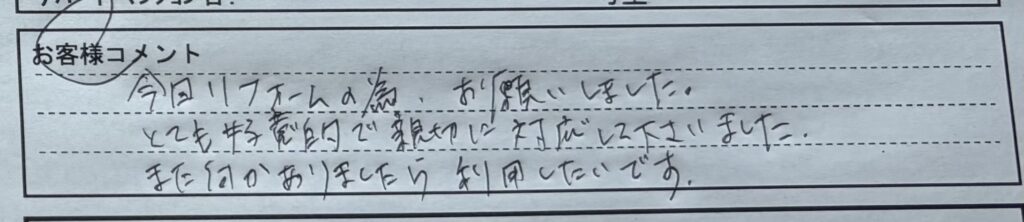 お客様コメント
今回リフォームの為、お願いしました。
とても好意的で親切に対応して下さいました。
また何かありましたら利用したいです。